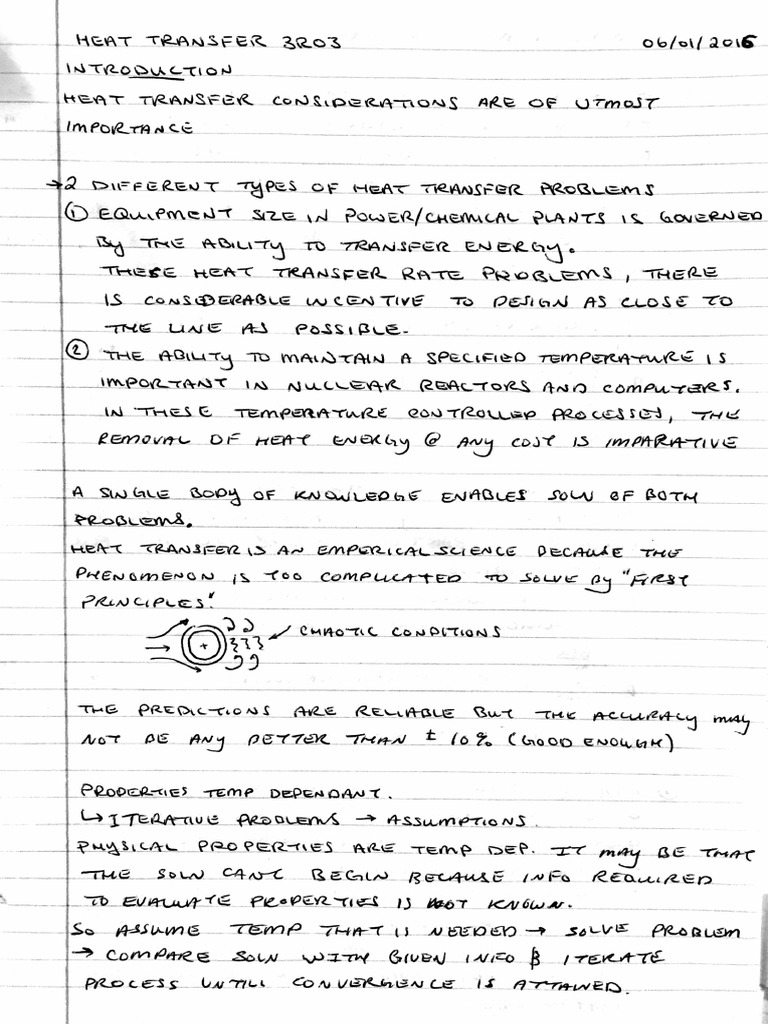 HEAT TRANSFER 3R03 06/01/2016
INTRODUCTION
HEAT TRANSFER CONSIDERATIONS ARE OF UTMOST
IMPORTANCE
→ 2 DIFFERENT TYPES OF HEAT TRANSFER PROBLEMS
① EQUIPMENT SIZE IN POWER/CHEMICAL PLANTS IS GOVERNED
By THE ABILITY TO TRANSFER ENERGY.
THESE HEAT TRANSFER RATE PROBLEMS, THERE
IS CONSIDERABLE INCENTIVE TO DESIGN AS CLOSE TO
THE LINE AS POSSIBLE.
② THE ABILITY TO MAINTAIN A SPECIFIED TEMPERATURE IS
IMPORTANT IN NUCLEAR REACTORS AND COMPUTERS.
IN THESE TEMPERATURE CONTROLLED PROCESSES, THE
REMOVAL OF HEAT ENERGY @ ANY COST IS IMPARATIVE
A SINGLE BODY OF KNOWLEDGE ENABLES SOLN OF BOTH
PROBLEMS.
HEAT TRANSFER IS AN EMPERICAL SCIENCE BECAUSE THE
PHENOMENON IS TOO COMPLICATED TO SOLVE By "FIRST
PRINCIPLES".
CHAOTIC CONDITIONS
THE PREDICTIONS ARE RELIABLE BUT THE ACCURACY MAY
NOT BE ANY BETTER THAN ± 10% (GOOD ENOUGH)
PROPERTIES TEMP DEPENDANT.
↳ ITERATIVE PROBLEMS → ASSUMPTIONS.
PHYSICAL PROPERTIES ARE TEMP DEP. IT MAY BE THAT
THE SOLN CANT BEGIN BECAUSE INFO REQUIRED
TO EVALUATE PROPERTIES IS NOT KNOWN.
SO ASSUME TEMP THAT IS NEEDED → SOLVE PROBLEM
→ COMPARE SOLN WITH GIVEN INFO & ITERATE
PROCESS UNTILL CONVERGENCE IS ATTAINED.